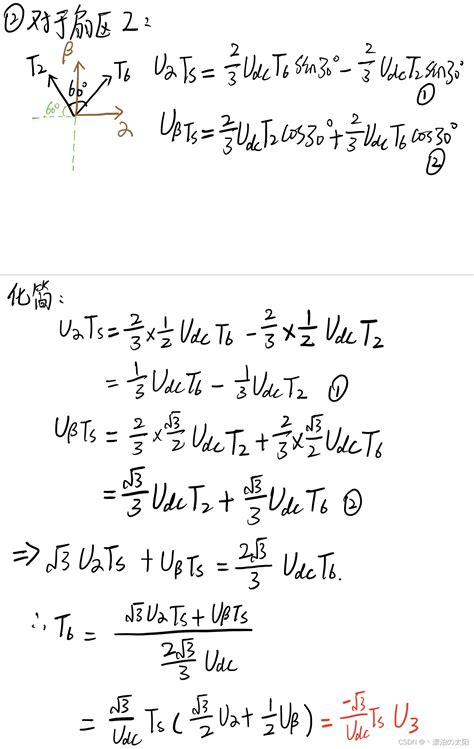 ② 对于扇区 2：
β
T2 60° T6
60°
α
UαTs = 2/3 Udc T6 sin30° - 2/3 Udc T2 sin30° ①
UβTs = 2/3 Udc T2 cos30° + 2/3 Udc T6 cos30° ②
化简：
UαTs = 2/3 × 1/2 Udc T6 - 2/3 × 1/2 Udc T2
= 1/3 Udc T6 - 1/3 Udc T2 ①
UβTs = 2/3 × √3/2 Udc T2 + 2/3 × √3/2 Udc T6
= √3/3 Udc T2 + √3/3 Udc T6 ②
⇒ √3 UαTs + UβTs = 2√3/3 Udc T6.
∴ T6 = (√3 UαTs + UβTs) / (2√3/3 Udc)
= √3/Udc Ts (√3/2 Uα + 1/2 Uβ) = -√3/Udc Ts U3
CSDN @丶漂泊の太阳